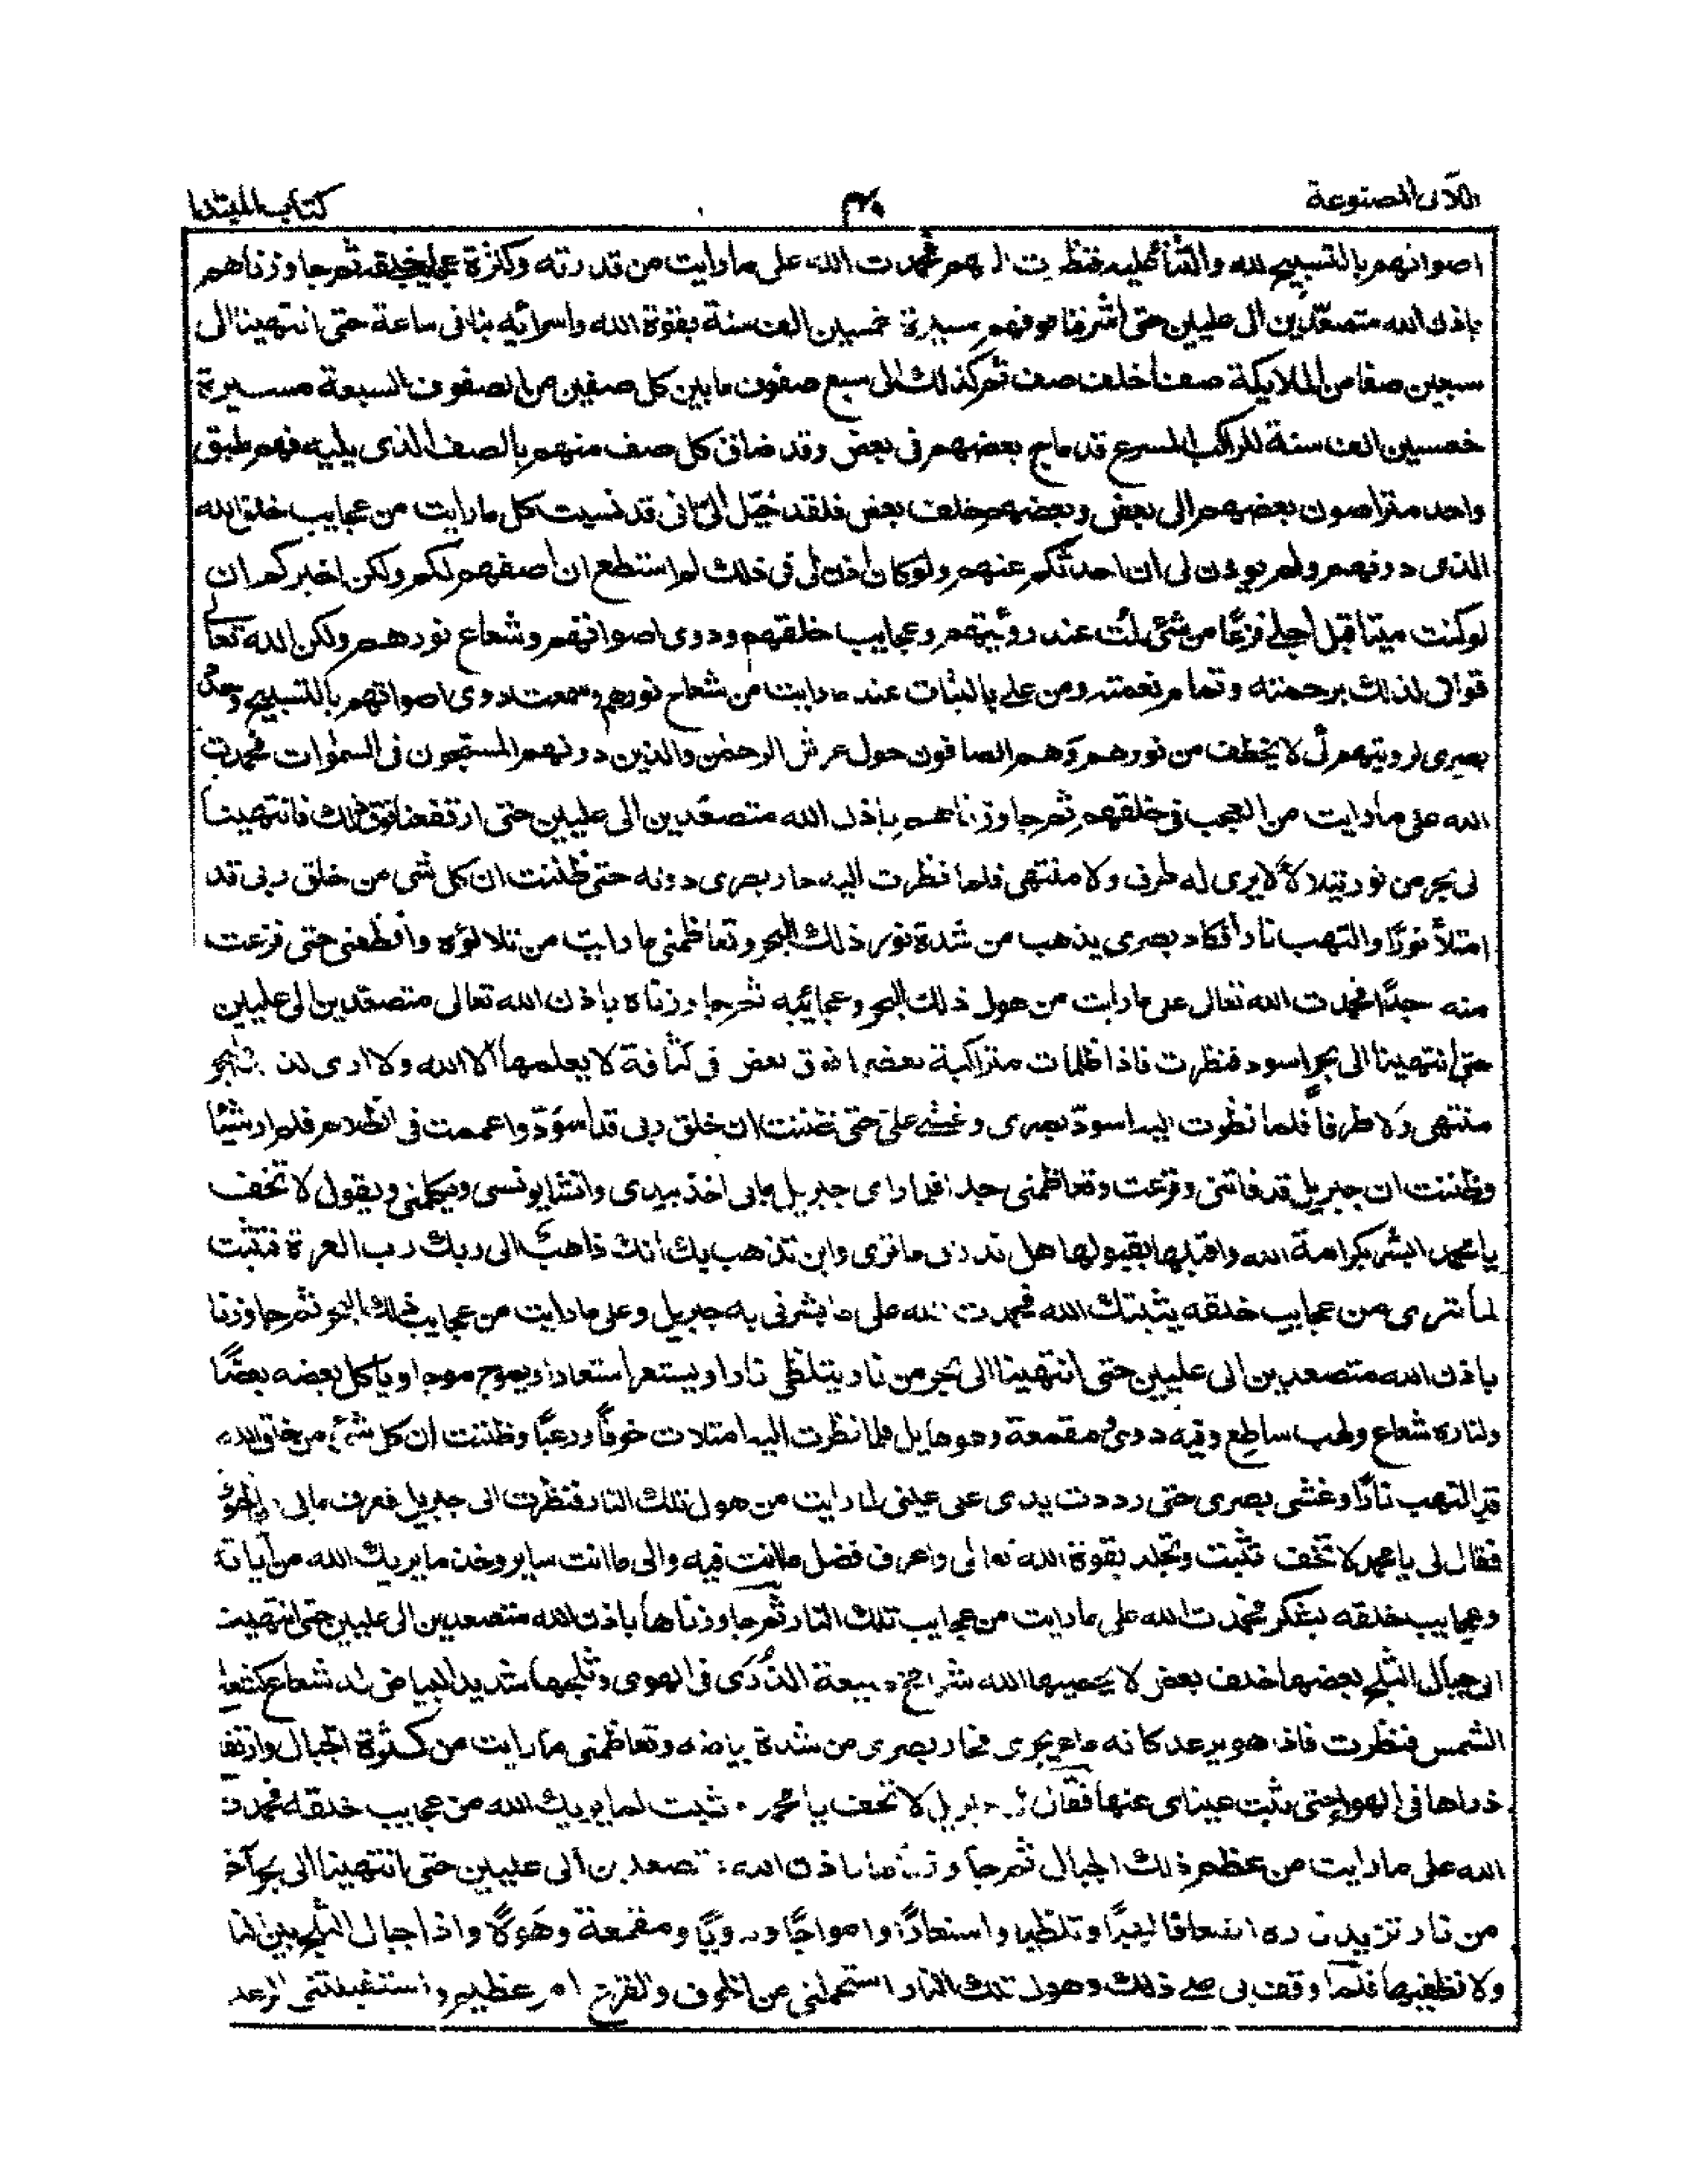 اللآلى المصنوعة
٤٠
كتاب المبتدا
اصواتهم بالتسبيح لله والثناء عليه فنظرت اليهم فحمدت الله على ما رايت من قدرته وكثرة عجايب خلقه ثم جاوزناهم
باذن الله متصعدين الى عليين حتى اشرفنا فوقهم مسيرة خمسين الف سنة بقوة الله واسرائه بنا فى ساعة حتى انتهينا الى
سبعين صفا من الملايكة صفا خلف صف ثم كذلك الى سبع صفوف ما بين كل صفين من الصفوف السبعة مسيرة
خمسين الف سنة للراكب المسرع قد ماج بعضهم فى بعض وقد ضاق كل صف منهم بالصف الذى يليه فهم طبق
واحد متراصون بعضهم الى بعض وبعضهم خلف بعض فلقد خيّل الىّ انى قد نسيت كل ما رايت من عجايب خلق الله
الذى دونهم ولم يوذن لى ان احدثكم عنهم ولو كان اذن لى فى ذلك لم استطع ان اصفهم لكم ولكن اخبركم ان
لو كنت ميتا قبل اجلى فزعًا من شئ لمت عند رؤيتهم وعجايب خلقهم ودوى اصواتهم وشعاع نورهم ولكن الله تعالى
قوانى لذلك برحمته وتمام نعمته ومن على بالثبات عند ما رايت من شعاع نورهم وسمعت دوى اصواتهم بالتسبيح وحدّ
بصرى لرويتهم لئلا يخطف من نورهم وهم الصافون حول عرش الرحمٰن والذين دونهم المسبحون فى السمٰوات فحمدت
الله على ما رايت من العجب فى خلقهم ثم جاوزناهم باذن الله متصعدين الى عليين حتى ارتفعنا فوق ذلك فانتهينا
الى بحر من نور يتلالأ لا يرى له طرف ولا منتهى فلما نظرت اليه حار بصرى دونه حتى ظننت ان كل شى من خلق ربى قد
امتلأ نورًا والتهب نارا فكاد بصرى يذهب من شدة نور ذلك البحر وتعاظمنى ما رايت من تلالؤه وافظعنى حتى فزعت
منه جدًا فحمدت الله تعالى على ما رايت من هول ذلك البحر وعجائبه ثم جاوزناه باذن الله تعالى متصعدين الى عليين
حتى انتهينا الى بحر اسود فنظرت فاذا ظلمات متراكبة بعضها فوق بعض فى كثافة لا يعلمها الا الله ولا ارى لذلك البحر
منتهى ولا طرفا فلما نظرت اليه اسودّ بصرى وغشى علىّ حتى ظننت ان خلق ربى قد اسوّد واعممت فى الظلام فلم ار شيئا
وظننت ان جبريل قد فاتنى وفزعت وتعاظمنى جدا فلما راى جبريل ما بى اخذ بيدى وانشا يونسنى ويكلمنى ويقول لا تخف
يا محمد ابشر بكرامة الله واقبلها بقبولها هل تدرى ما ترى واين تذهب بك انك ذاهبٌ الى ربك رب العزة فتثبت
لما ترى من عجايب خلقه يثبتك الله فحمدت الله على ما بشرنى به جبريل وعلى ما رايت من عجايب ذلك البحر ثم جاوزنا
باذن الله متصعدين الى عليين حتى انتهينا الى بحر من نار يتلظى نارا ويستعر استعارا ويموج موجا وياكل بعضه بعضًا
ولناره شعاع ولهب ساطع وفيه دوى ومقمعة وهو هايل فلما نظرت اليه امتلات خوفًا ورعبًا وظننت ان كل شئ من خلق الله
قد التهب نارًا وغشى بصرى حتى رددت يدى على عينى لما رايت من هول تلك النار فنظرت الى جبريل فعرف ما بى
فقال لى يا محمد لا تخف تثبت وتجلد بقوة الله تعالى واعرف فضل ما انت فيه والى ما انت ساير وخذ ما يريك الله من آياته
وعجايب خلقه بشكر فحمدت الله على ما رايت من عجايب تلك النار ثم جاوزناها باذن الله متصعدين الى عليين حتى انتهينا
الى جبال الثلج بعضها خلف بعض لا يحصيها الا الله شوامخ منيعة الذُّرَى فى الهوى وثلجها شديد البياض له شعاع كشعاع
الشمس فنظرت فاذا هو يرعد كانه ماء يجرى فحار بصرى من شدة بياضه وتعاظمنى ما رايت من كثرة الجبال وارتفاع
ذراها فى الهواء حتى نبت عيناى عنها فقال لى جبريل لا تخف يا محمد وتثبت لما يريك الله من عجايب خلقه فحمدت
الله على ما رايت من عظم ذلك الجبال ثم جاوزناها باذن الله متصعدين الى عليين حتى انتهينا الى بحر آخر
من نار تزيد ناره اضعافا لهبًا وتلظيا واستعارًا وامواجًا ودويًا ومقمعة وهَولًا واذا جبال الثلج بين النا
ولا تطفيها فلما وقف بى على ذلك وهول تلك النار استحملنى من الخوف والفزع امر عظيم واستقبلتنى الرعد